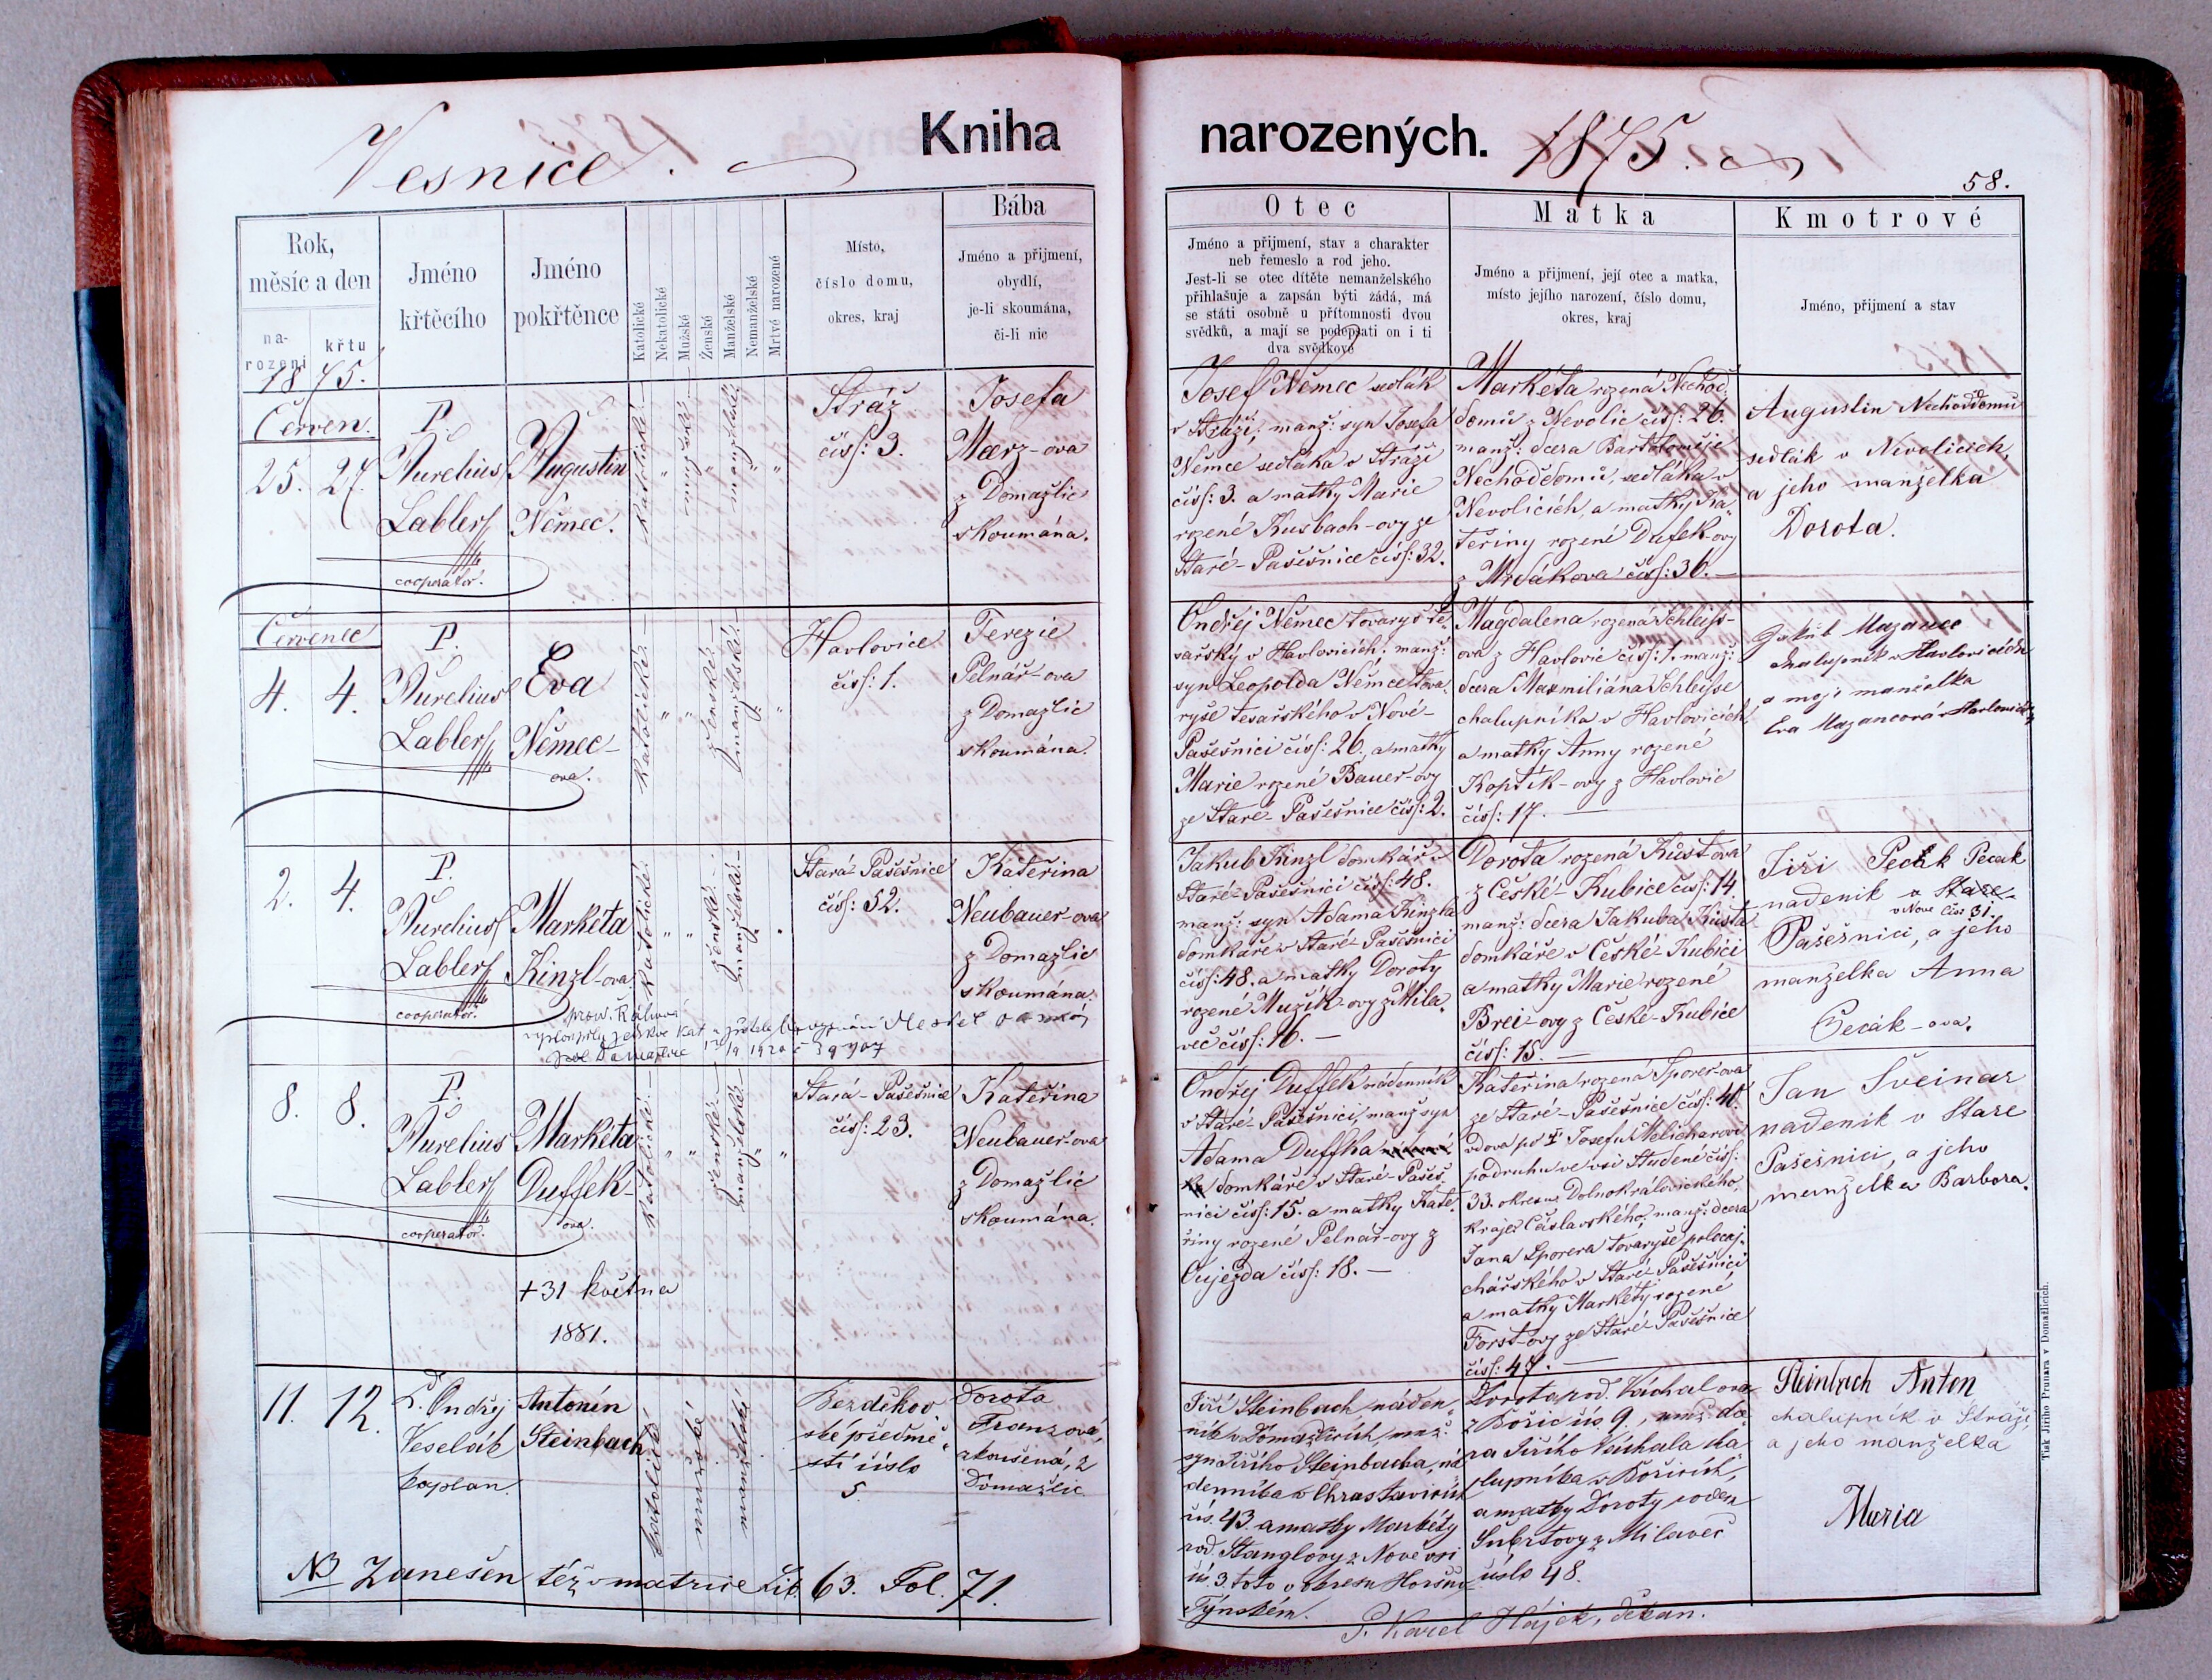 Vesnice.
Kniha
narozených.
1875.
58.
Rok,
měsíc a den
na-
rození
křtu
Jméno
křtěcího
Jméno
pokřtěnce
Katolické
Nekatolické
Mužské
Ženské
Manželské
Nemanželské
Mrtvě narozené
Místo,
číslo domu,
okres, kraj
Bába
Jméno a přijmení,
obydlí,
je-li skoumána,
či-li nic
Otec
Jméno a přijmení, stav a charakter
neb řemeslo a rod jeho.
Jest-li se otec dítěte nemanželského
přihlašuje a zapsán býti žádá, má
se státi osobně u přítomnosti dvou
svědků, a mají se podepsati on i ti
dva svědkové
Matka
Jméno a přijmení, její otec a matka,
místo jejího narození, číslo domu,
okres, kraj
Kmotrové
Jméno, přijmení a stav
1875.
Červen.
25. 27.
P.
Aurelius
Labler
cooperator.
Augustin
Němec.
katolické
mužské
manželské
Stráž
čísl: 3.
Josefa
Marz-ova
z Domažlic
skoumána.
Josef Němec sedlák
v Stráži, manž: syn Josefa
Němce sedláka v Stráži
čísl: 3. a matky Marie
rozené Kusbach-ovy ze
Staré-Pasešnice čísl: 32.
Markéta rozená Nechoď-
domů z Nevolic čísl: 26.
manž: dcera Bartoloměje
Nechoďdomů, sedláka v
Nevolicích, a matky Ka-
teřiny rozené Dufek-ovy
z Mrdákova čísl: 36.
Augustin Nechoďdomů
sedlák v Nevolicích,
a jeho manželka
Dorota.
Červenec
4. 4.
P.
Aurelius
Labler
Eva
Němec-
ova.
katolické
ženské
manželské
Havlovice
čísl: 1.
Terezie
Pelnář-ova
z Domažlic
skoumána.
Ondřej Němec tovaryš te-
sařský v Havlovicích, manž:
syn Leopolda Němce tova-
ryše tesařského v Nové-
Pasešnici čísl: 26. a matky
Marie rozené Bauer-ovy
ze Staré-Pasešnice čísl: 2.
Magdalena rozená Schleiss-
ova z Havlovic čísl: 1. manž:
dcera Maxmiliána Schleisse
chalupníka v Havlovicích,
a matky Anny rozené
Koptik-ovy z Havlovic
čísl: 17.
Jakub Mazanec
chalupník v Havlovicích
a moje manželka
Eva Mazancová v Havlovicích
2. 4.
P.
Aurelius
Labler
cooperator.
Markéta
Kinzl-ova
katolické
ženské
manželské
Stará-Pasešnice
čísl: 52.
Kateřina
Neubauer-ova
z Domažlic
skoumána.
Jakub Kinzl domkář v
Staré-Pasešnici čísl: 48.
manž: syn Adama Kinzla
domkáře v Staré-Pasešnici
čísl: 48. a matky Doroty
rozené Mužík-ovy z Mila-
več čísl: 16.
Dorota rozená Kust-ova
z České-Kubice čísl: 14.
manž: dcera Jakuba Kusta
domkáře v České-Kubici
a matky Marie rozené
Brei-ovy z České-Kubice
čísl: 15.
Jiří Pecák Pecak
nadenik v Stare-
v Nove čís: 31.
Pašešnici, a jeho
manželka Anna
Pecák-ova.
8. 8.
P.
Aurelius
Labler
cooperator.
Markéta
Duffek-
ova.
+31 května
1881.
katolické
ženské
manželské
Stará-Pasešnice
čísl: 23.
Kateřina
Neubauer-ova
z Domažlic
skoumána.
Ondřej Duffek nádenník
v Staré-Pasešnici, manž syn
Adama Duffka
domkáře v Staré-Paseš-
nici čísl: 15. a matky Kate-
řiny rozené Pelnař-ovy z
Oujezda čísl: 18.
Kateřina rozená Sporer-ova
ze Staré-Pasešnice čísl: 40.
vdova po + Josefu Melicharovi
podruhu ve vsi Studené čísl:
33. okresu Dolnokralovického,
kraje Čáslavského, manž: dcera
Jana Sporera tovaryše punčo-
chářského v Staré-Pasešnici
a matky Markéty rozené
Forst-ovy ze Staré-Pasešnice
čísl: 47.
Jan Šveinar
nadenik v Stare
Pašešnici, a jeho
manželka Barbora.
11. 12.
P. Ondřej
Veselák
kaplan.
Antonín
Steinbach
katolické
mužské
manželské
Bezděkov-
ské předmě-
stí číslo
5.
Dorota
Franzová,
zkoušená, z
Domažlic.
Jiří Steinbach náden-
ník v Domažlicích, manž.
syn Jiřího Steinbacha, ná-
denníka v Chrastavicích
čís. 43. a matky Markéty
rod. Stanglovy z Nové vsi
čís. 3. toto v okresu Horšov-
Týnském.
Dorota rod. Váchalova
z Bořic čís. 9., manž. dce-
ra Jiřího Váchala cha-
lupníka v Bořicích,
a matky Doroty rozen
Šubrtovy z Milaveč
číslo 48.
Steinbach Anton
chalupník v Stráži,
a jeho manželka
Maria
NB Zanešen též v matrice Lib. 63. Fol. 71.
P. Karel Hájek, děkan.
Tisk Jiřího Prunara v Domažlicích.